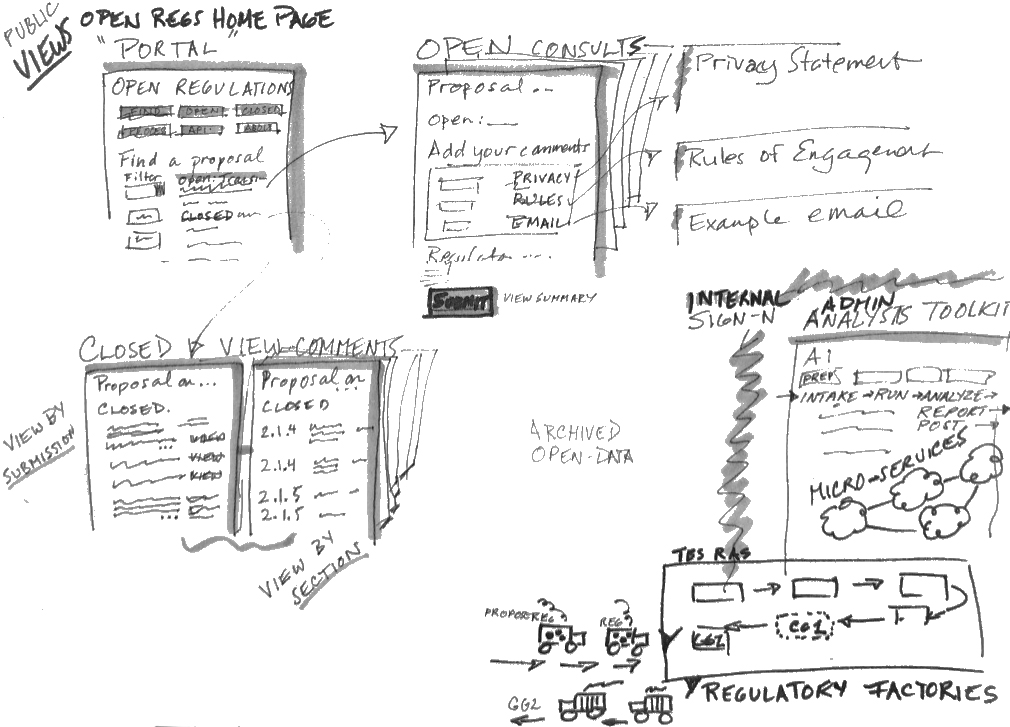 PUBLIC
VIEWS
OPEN REGS HOME PAGE
"PORTAL"
OPEN REGULATIONS
FIND OPEN CLOSED
API ABOUT
Find a proposal
Filter
CLOSED
OPEN CONSULTS
Proposal ...
Open:
Add your comments
PRIVACY
RULES
EMAIL
SUBMIT VIEW SUMMARY
Privacy Statement
Rules of Engagement
Example email
CLOSED VIEW COMMENTS
VIEW BY
SUBMISSION
Proposal on ...
CLOSED.
VIEW
VIEW
VIEW
Proposal on
...
CLOSED
2.1.4
2.1.4
2.1.5
2.1.5
VIEW BY
SECTION
ARCHIVED
OPEN-DATA
INTERNAL
SIGN-N
ADMIN
ANALYSTS TOOLKIT
AI
PREP
INTAKE → RUN → ANALYZE →
REPORT →
POST
MICRO-SERVICES
TBS RAS
CG1
CG2
REG
GG2
REGULATORY FACTORIES